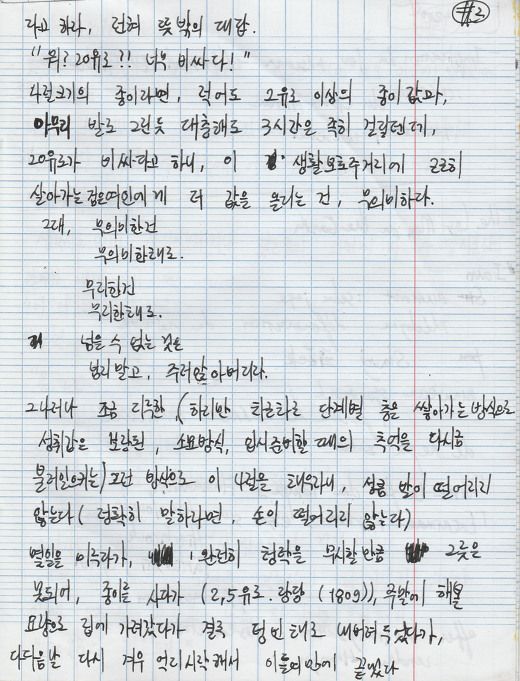 #3
다고 하라, 전혀 뜻밖의 대답.
"뭐? 20유로?!! 너무 비싸다!"
나절크기의 종이라면, 적어도 2유로 이상의 종이 값과,
아무리 발로 그린듯 대충해도 3시간은 족히 걸릴텐데,
20유로가 비싸다고 하니, 이 생활보호주거리에 근근히
살아가는 젊은여인에게 더 값을 올리는 건, 무의미하다.
그대, 무의미한건
무의미한대로.
무리한건
무리한대로.
넘을 수 없는 것은
넘지말고, 주저앉아버리라.
그나저나 조금 디루한 (하지만 차근차근 단계별 층을 쌓아가는 방식으로
성취감은 보장된, 소묘방식, 입시준비할 때의 추억을 다시금
불러일으키는) 그런 방식으로 이 4절을 채우라니, 성큼 발이 떨어지지
않는다 (정확히 말하자면, 손이 떨어지지 않는다)
몇일을 미루다가, 완전히 협약을 무시할만큼 그릇은
못되어, 종이를 사다가 (2,5유로. 장당 (180g)), 주말에 해볼
요량으로 집에 가져갔다가 결국 텅빈 채로 내버려두었다가,
다다음날 다시 겨우 억지시작해서 이틀만에 끝냈다